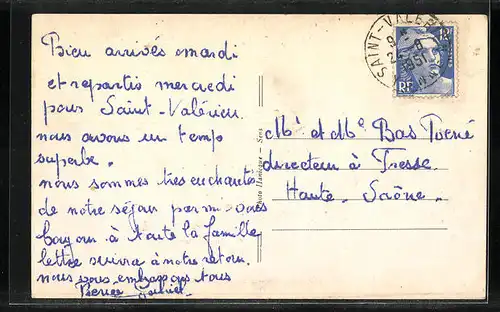 Bien arrivés mardi
et repartis mercredi
pour Saint-Valérien.
nous avons un temp
superbe.
nous sommes très enchantés
de notre séjour parmi vous
bonjour à toute la famille
lettre suivra à notre retour.
nous vous embrassons tous
SAINT-VALER
9 H
2 8
1951
RF
Mr et Me Bas
directeur à Fresse
Haute-Saône.
Photo — Sens